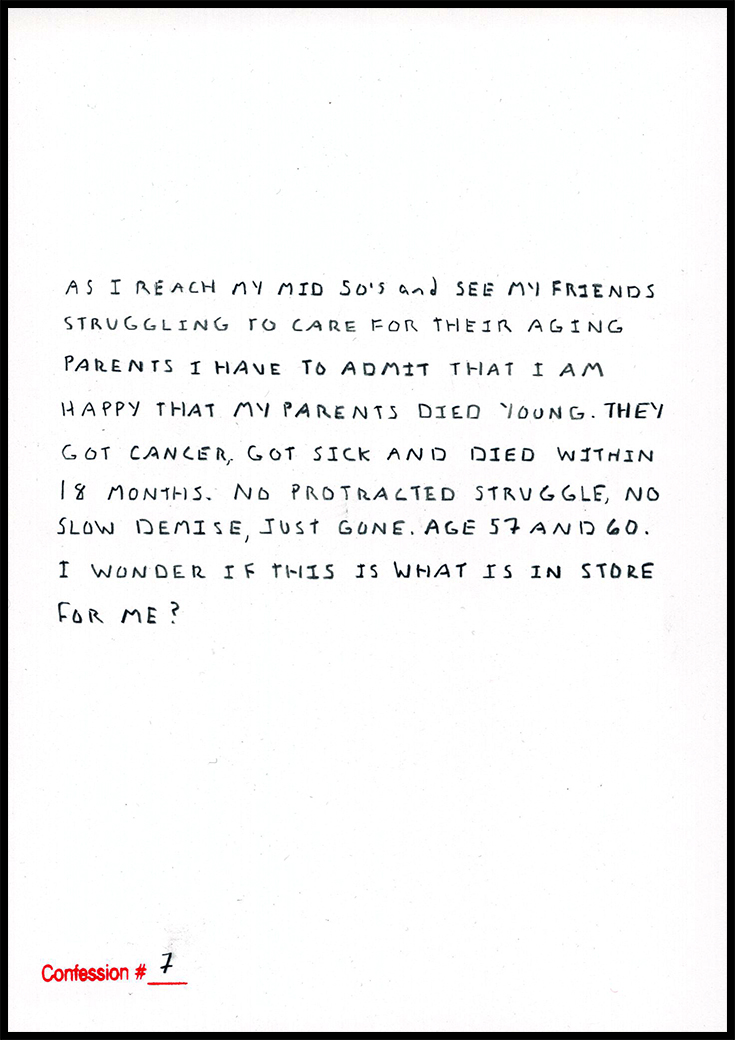 AS I REACH MY MID 50'S and SEE MY FRIENDS
STRUGGLING TO CARE FOR THEIR AGING
PARENTS I HAVE TO ADMIT THAT I AM
HAPPY THAT MY PARENTS DIED YOUNG. THEY
GOT CANCER, GOT SICK AND DIED WITHIN
18 MONTHS. NO PROTRACTED STRUGGLE, NO
SLOW DEMISE, JUST GONE. AGE 57 AND 60.
I WONDER IF THIS IS WHAT IS IN STORE
FOR ME?
Confession # 7